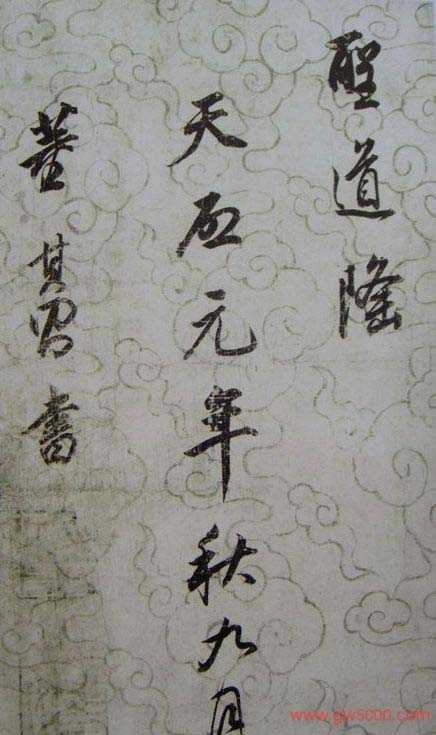 聖道隆
天啟元年秋九月
董其昌書
www.gw5000.com